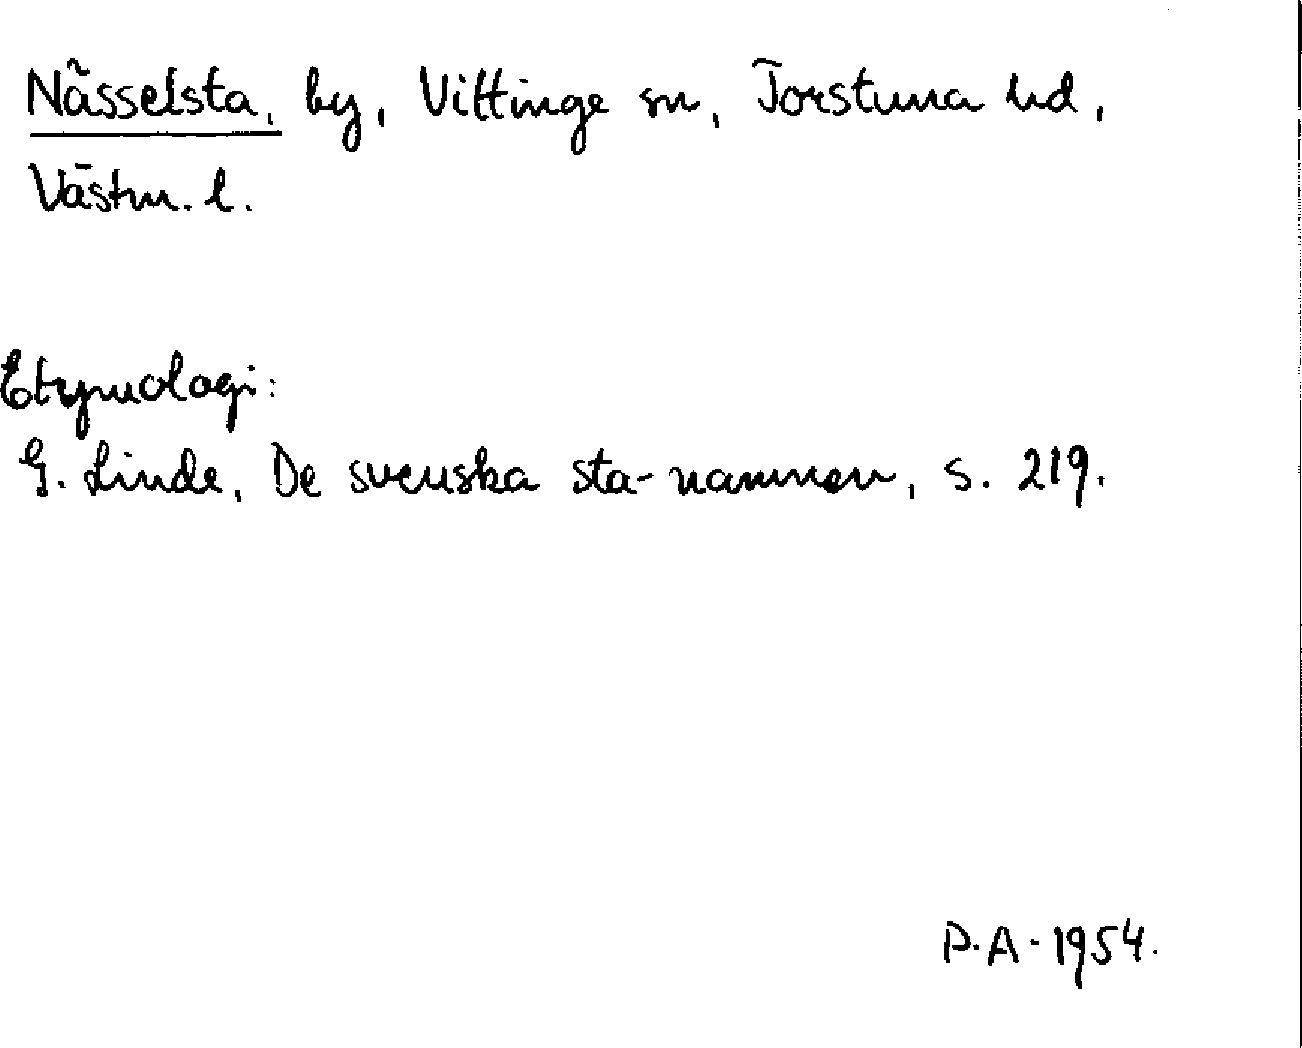 Nässelsta, by, Vittinge sn, Torstuna hd,
Västm. l.
Etymologi:
G. Linde, De svenska sta-namnen, s. 219.
P.A. 1954.